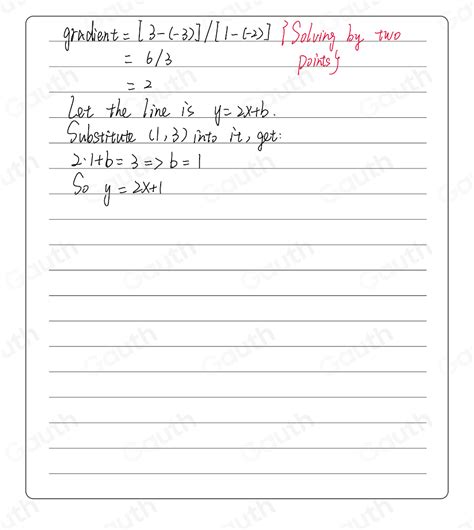 gradient = [3-(-3)]/[1-(-2)] {Solving by two
points}
= 6/3
= 2
Let the line is y=2x+b.
Substitute (1,3) into it, get:
2·1+b=3=>b=1
So y=2x+1
Gauth